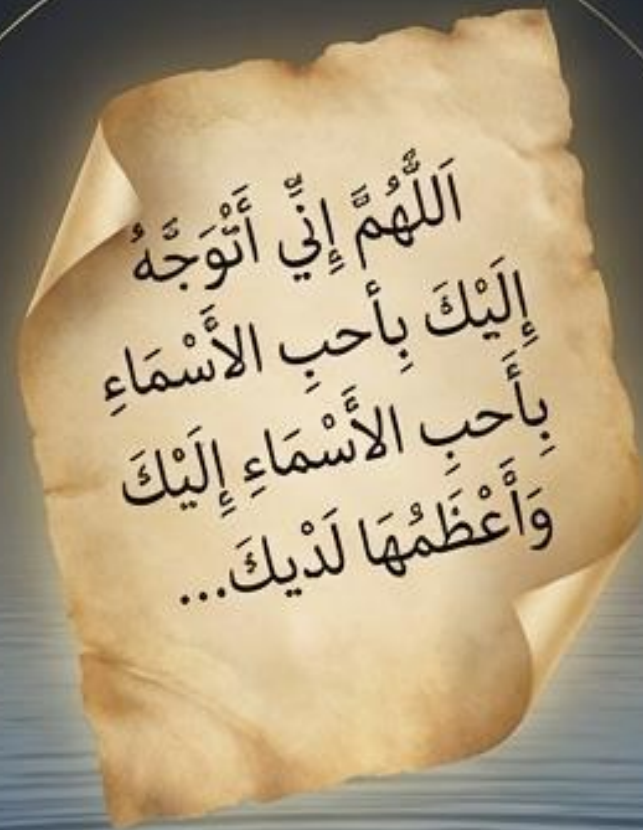 اَللَّهُمَّ إِنِّي أَتَّوَجَّهُ
إِلَيْكَ بِأحبِ الأَسْمَاءِ
بِأَحبِ الأَسْمَاءِ إِلَيْكَ
وَأَعْظَمُهَا لَدْيكَ...